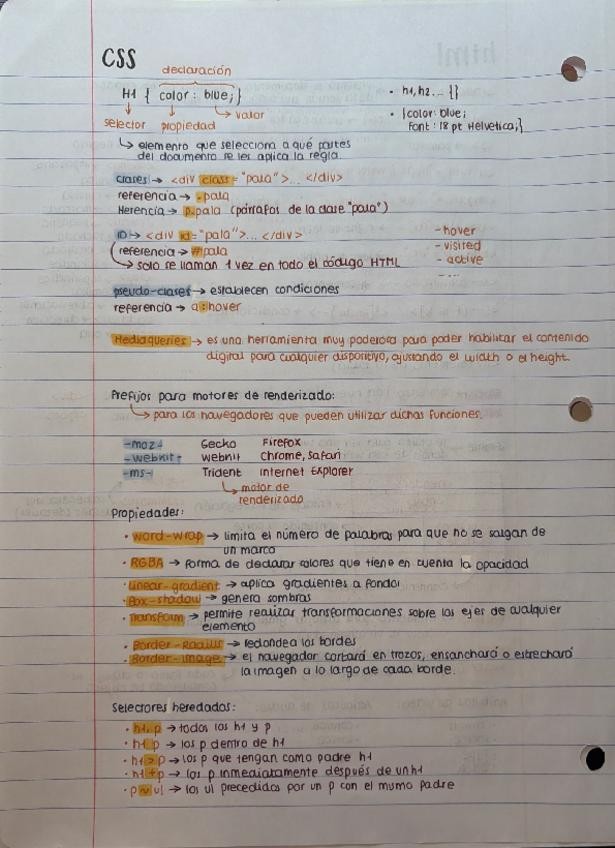 CSS
declaración
H1 { color: blue; }
selector propiedad valor
· h1, h2... {}
· {color: blue;
Font: 18 pt Helvetica;}
elemento que selecciona a qué partes
del documento se les aplica la regla.
clases → <div class="pala">... </div>
referencia → .pala
Herencia → p.pala (párrafos de la clase "pala")
ID → <div id="pala">... </div>
referencia → #pala
→ solo se llaman 1 vez en todo el código HTML
- hover
- visited
- active
- ...
pseudo-clases → establecen condiciones
referencia → a:hover
Mediaqueries → es una herramienta muy poderosa para poder habilitar el contenido
digital para cualquier dispositivo, ajustando el width o el height.
Prefijos para motores de renderizado:
→ para los navegadores que pueden utilizar dichas funciones.
-moz- Gecko Firefox
-webkit- webkit Chrome, Safari
-ms- Trident Internet Explorer
→ motor de
renderizado
Propiedades:
· word-wrap → limita el número de palabras para que no se salgan de
un marco
· RGBA → forma de declarar colores que tiene en cuenta la opacidad
· linear-gradient → aplica gradientes a fondos
· Box-shadow → genera sombras
· Transform → permite realizar transformaciones sobre los ejes de cualquier
elemento
· Border-Radius → redondea los bordes
· Border-image → el navegador cortará en trozos, ensanchará o estrechará
la imagen a lo largo de cada borde.
Selectores heredados:
· h1, p → todos los h1 y p
· h1 p → los p dentro de h1
· h1 > p → los p que tengan como padre h1
· h1 + p → los p inmediatamente después de un h1
· p ~ ul → los ul precedidos por un p con el mismo padre